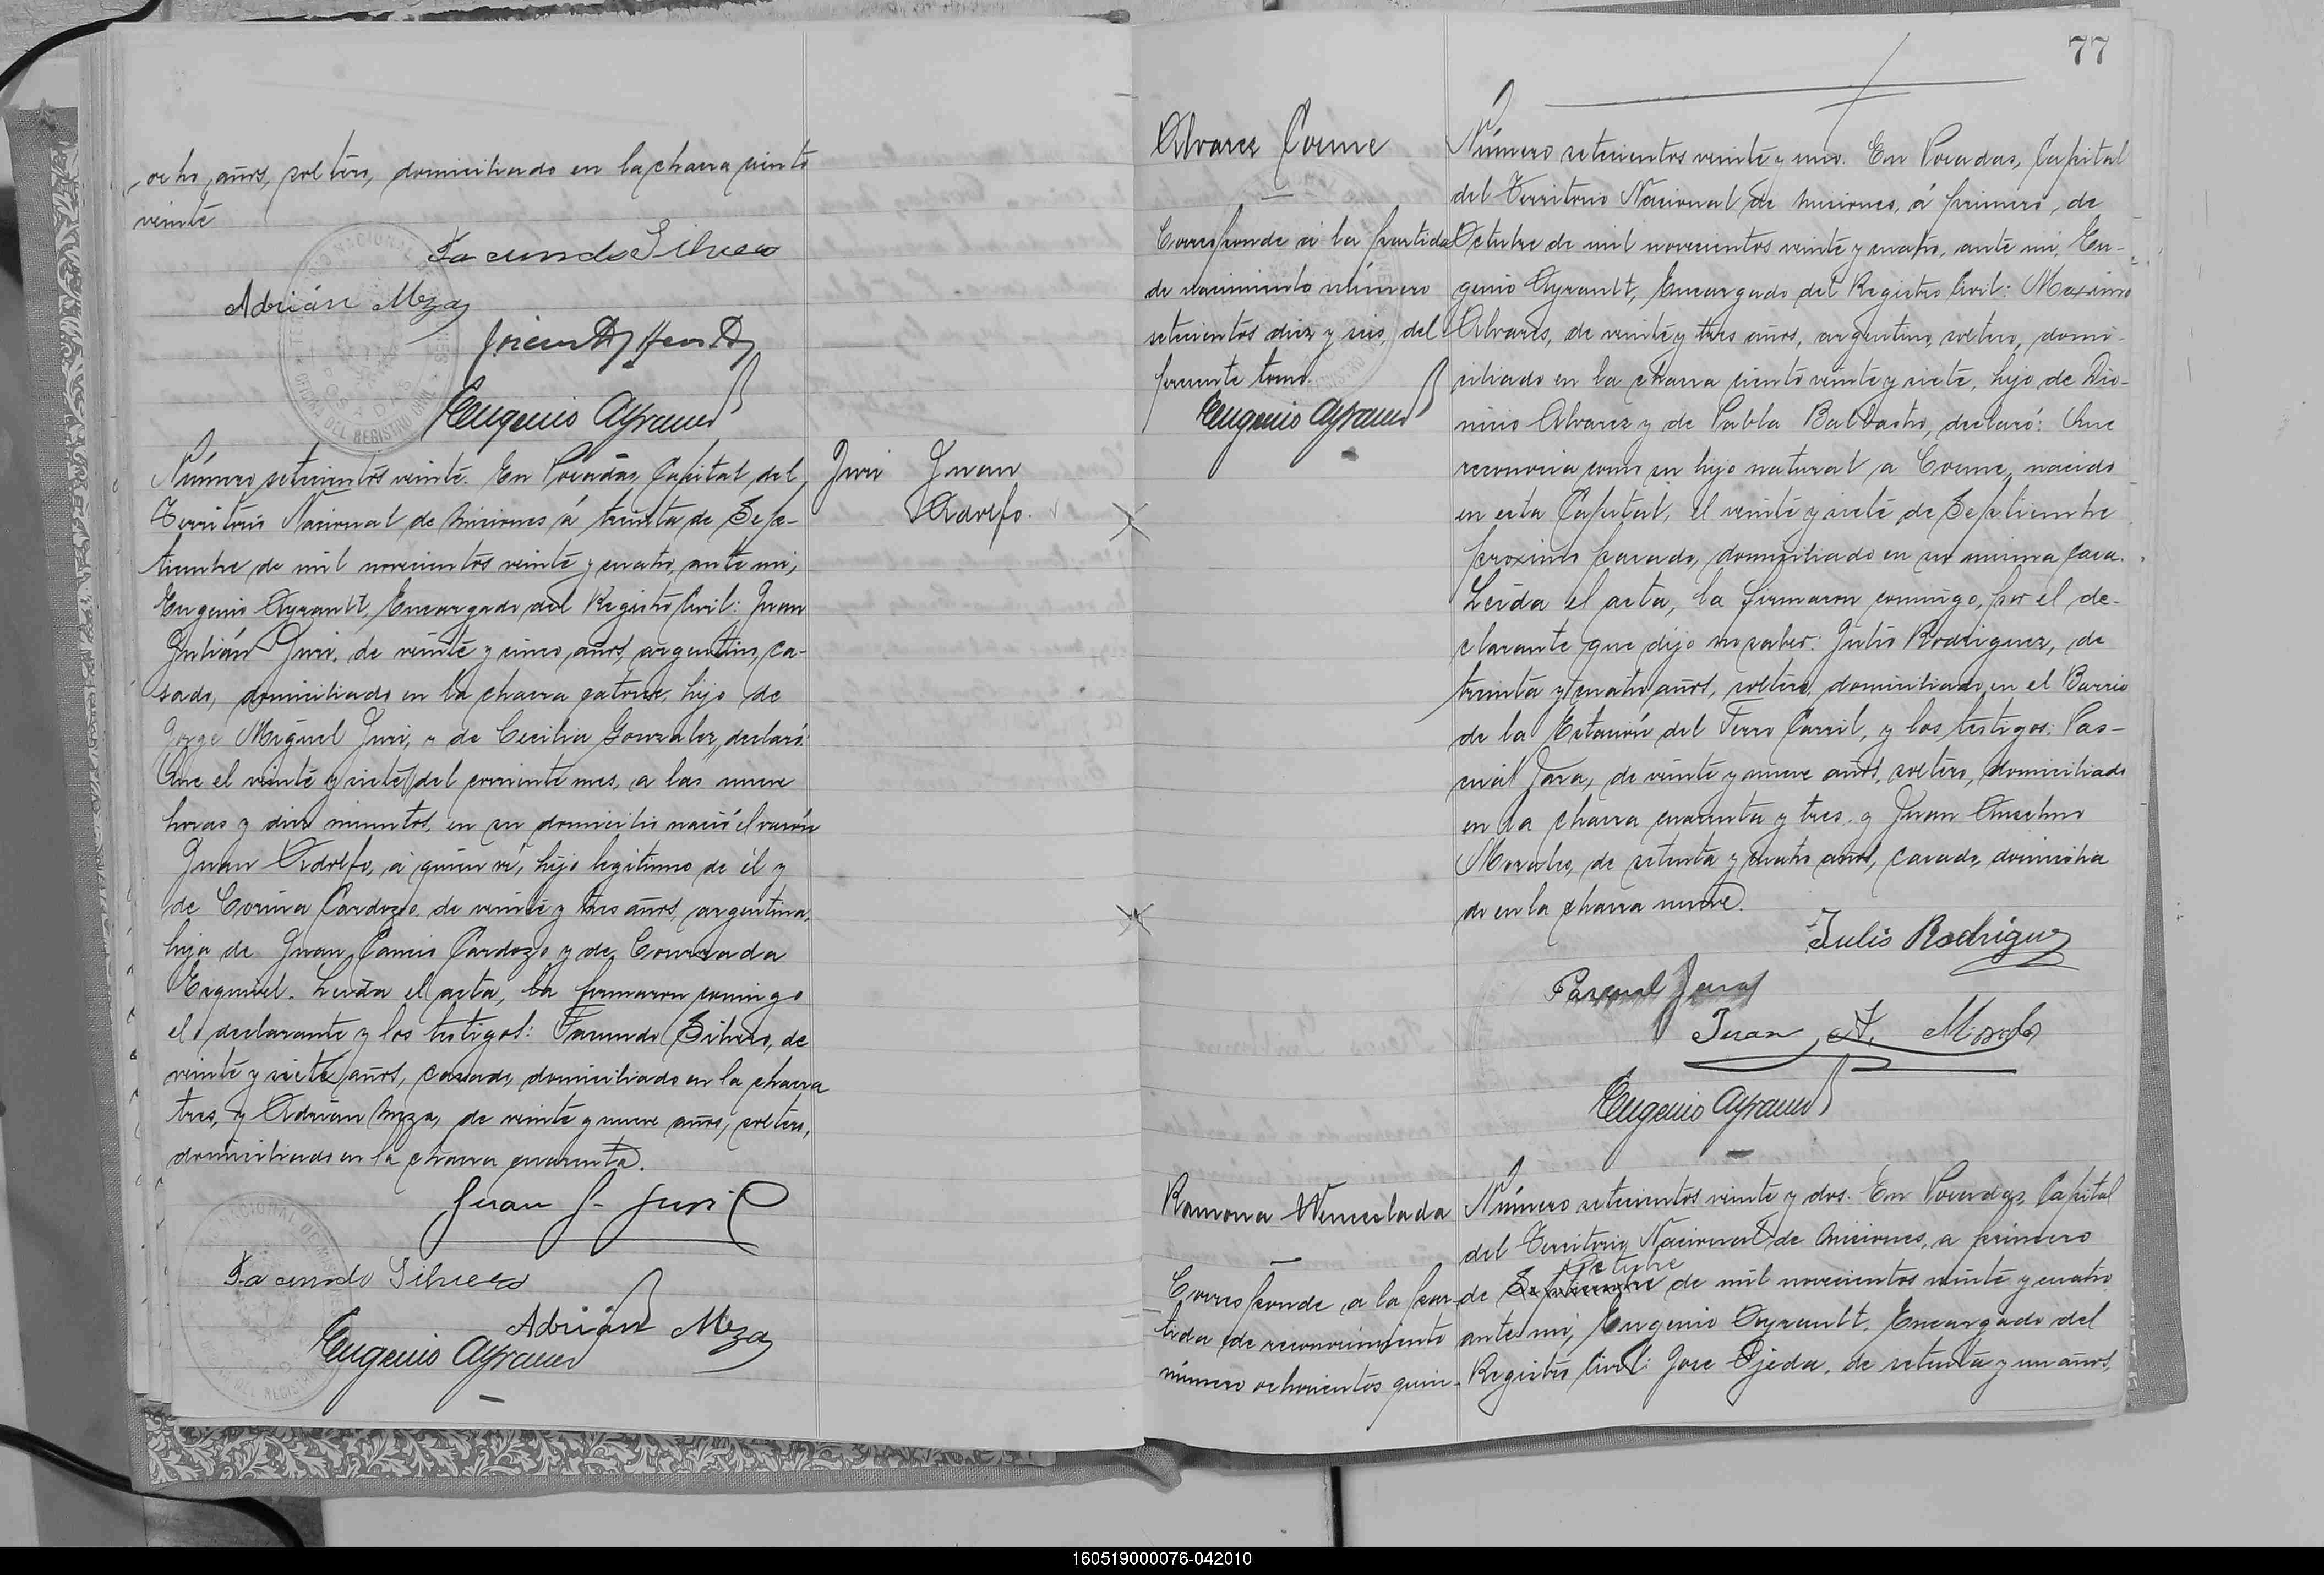 ocho, años, soltero, domiciliado en la chacra ciento
veinte
Facundo Silvero
Adrián Meza
Eugenio Ayrault
Número setecientos veinte. En Posadas, Capital del
Territorio Nacional de Misiones á treinta de Sep-
tiembre de mil novecientos veinte y cuatro, ante mi,
Eugenio Ayrault, Encargado del Registro Civil: Juan
Julián Juri, de veinte y cinco años, argentino, ca-
sado, domiciliado en la chacra catorce, hijo de
Jorge Miguel Juri, y de Cecilia Gonzalez, declaró:
Que el veinte y siete del corriente mes, a las nueve
horas y diez minutos, en su domicilio nació el varón
Juan Adolfo, a quien ví, hijo legitimo de él y
de Corina Cardozo de veinte y tres años, argentina,
hija de Juan Cancio Cardozo y de Conrada
Esquivel. Leida el acta, la firmaron conmigo
el declarante y los testigos: Facundo Silvero, de
veinte y siete años, casado, domiciliado en la chacra
tres, y Adrián Meza, de veinte y nueve años, soltero,
domiciliado en la chacra cuarenta.
Juan J. Juri
Facundo Silvero
Adrián Meza
Eugenio Ayrault
Juri Juan
Adolfo.
77
Alvarez Cosme
Corresponde a la partida
de nacimiento número
setecientos diez y seis, del
presente tomo.
Eugenio Ayrault
Número setecientos veinte y uno. En Posadas, Capital
del Territorio Nacional de Misiones, á primero, de
Octubre de mil novecientos veinte y cuatro, ante mi, Eu-
genio Ayrault, Encargado del Registro Civil: Maximo
Alvares, de veinte y tres años, argentino, soltero, domi-
ciliado en la chacra ciento veinte y siete, hijo de Dio-
nicio Alvarez y de Pabla Balbastro, declaró: Que
reconocia como su hijo natural a Cosme, nacido
en esta Capital, el veinte y siete de Septiembre
proximo pasado, domiciliado en su misma casa.
Leída el acta, la firmaron conmigo, por el de-
clarante que dijo no saber: Julio Rodriguez, de
treinta y cuatro años, soltero, domiciliado en el Barrio
de la Estación del Ferro Carril, y los testigos: Pas-
cual Jara, de veinte y nueve años, soltero, domiciliado
en la chacra cuarenta y tres, y Juan Anselmo
Morales, de setenta y cuatro años, casado, domicilia
do en la chacra nueve.
Julio Rodriguez
Pascual Jara
Juan A. Morales
Eugenio Ayrault
Ramona Wenceslada
Corresponde a la par-
tida de reconocimiento
número ochocientos quin-
Número setecientos veinte y dos. En Posadas, Capital
del Territorio Nacional de Misiones, a primero
Octubre
de Septiembre de mil novecientos veinte y cuatro
ante mi, Eugenio Ayrault, Encargado del
Registro Civil: Jose Ojeda, de setenta y un años,
160519000076-042010